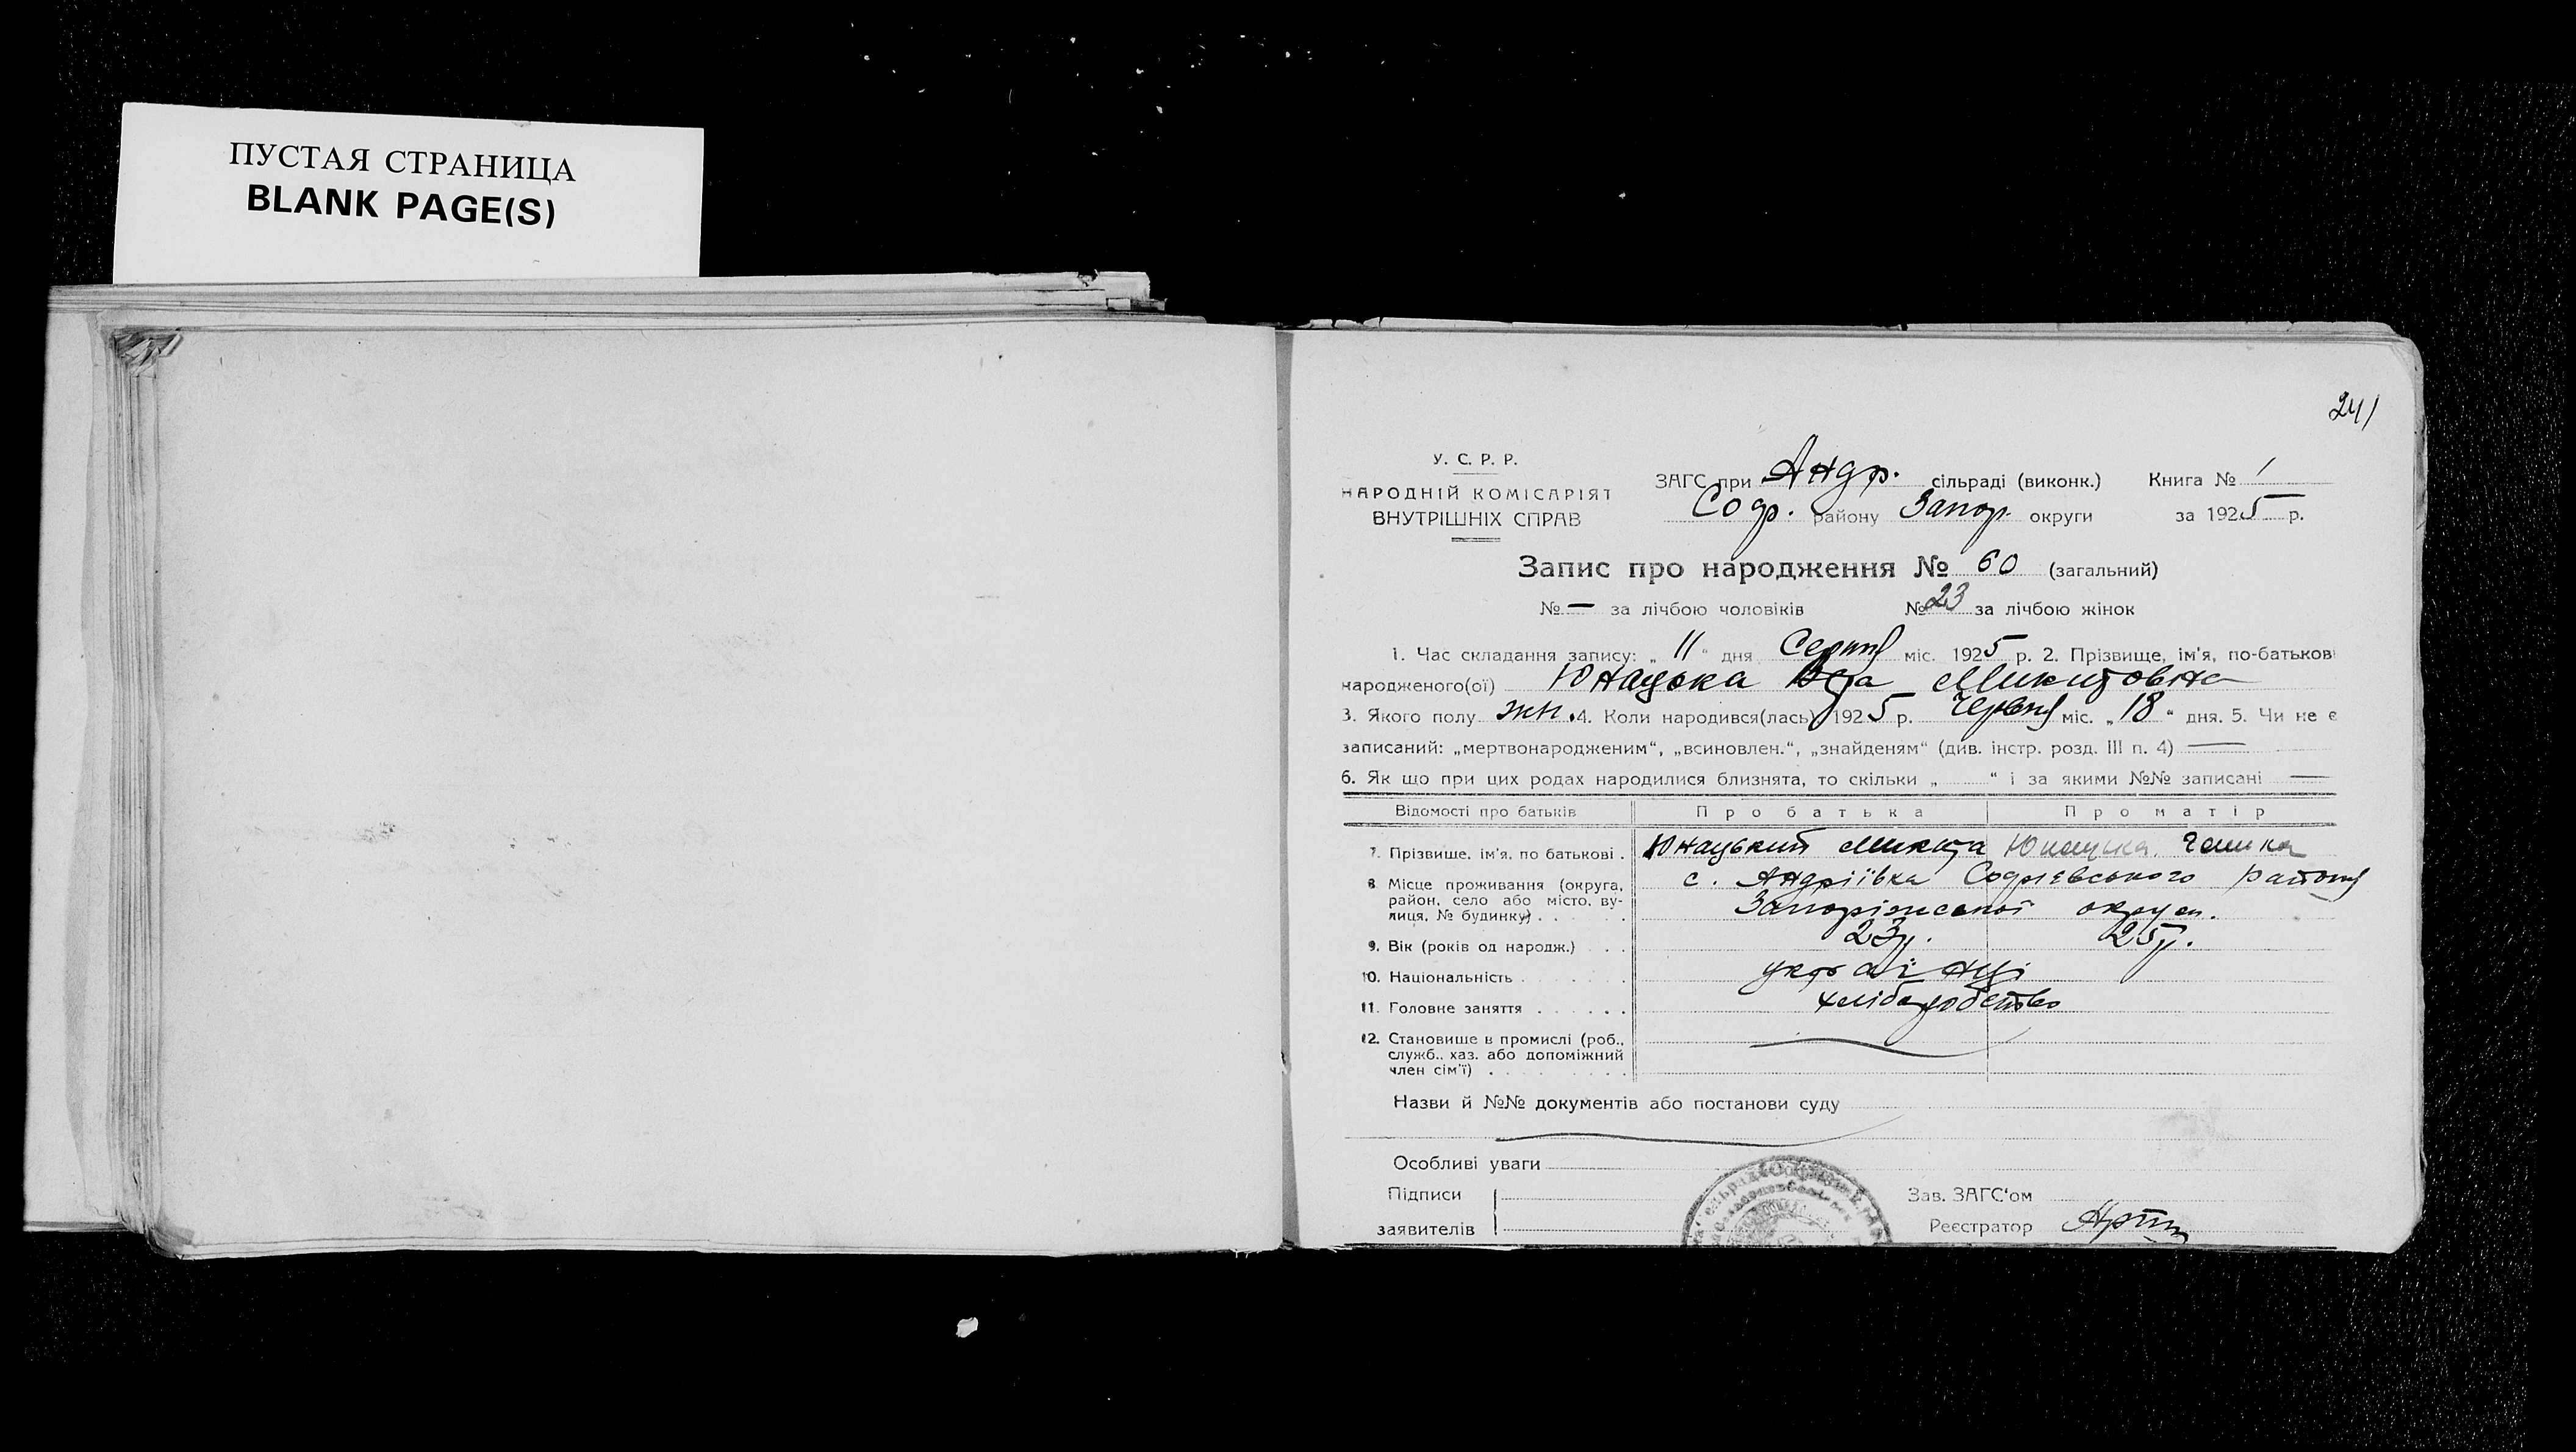 ПУСТАЯ СТРАНИЦА
BLANK PAGE(S)
241
У. С. Р. Р.
НАРОДНІЙ КОМІСАРІЯТ
ВНУТРІШНІХ СПРАВ
ЗАГС при Андр. сільраді (виконк.) Книга № 1
Софр. району Запор. округи за 1925 р.
Запис про народження № 60 (загальний)
№ — за лічбою чоловіків № 23 за лічбою жінок
1. Час складання запису: „ 11 “ дня Серпня міс. 1925 р. 2. Прізвище, ім'я, по-батькові
народженого(ої) Юнацька Микитовна
3. Якого полу жін. 4. Коли народився(лась) 1925 р. Червня міс. „ 18 “ дня. 5. Чи не є
записаний: „мертвонародженим“, „всиновлен.“, „знайденям“ (див. інстр. розд. III п. 4) —
6. Як що при цих родах народилися близнята, то скільки „ “ і за якими №№ записані —
Відомості про батьків Про батька Про матір
7. Прізвище, ім'я, по батькові . Юнацький Микита Юнацька
8. Місце проживання (округа, район, село або місто, вулиця, № будинку) . . . . . . с. Андріївка Софіевського району
Запоріжської округи.
9. Вік (років од народж.) . . . 23р. 25р.
10. Національність . . . . . . . українці
11. Головне заняття . . . . . . хліборобство
12. Становище в промислі (роб.,
служб., хаз. або допоміжний
член сім'ї) . . . . . . . . .
Назви й №№ документів або постанови суду
Особливі уваги
Підписи
заявителів
Зав. ЗАГС'ом
Реєстратор